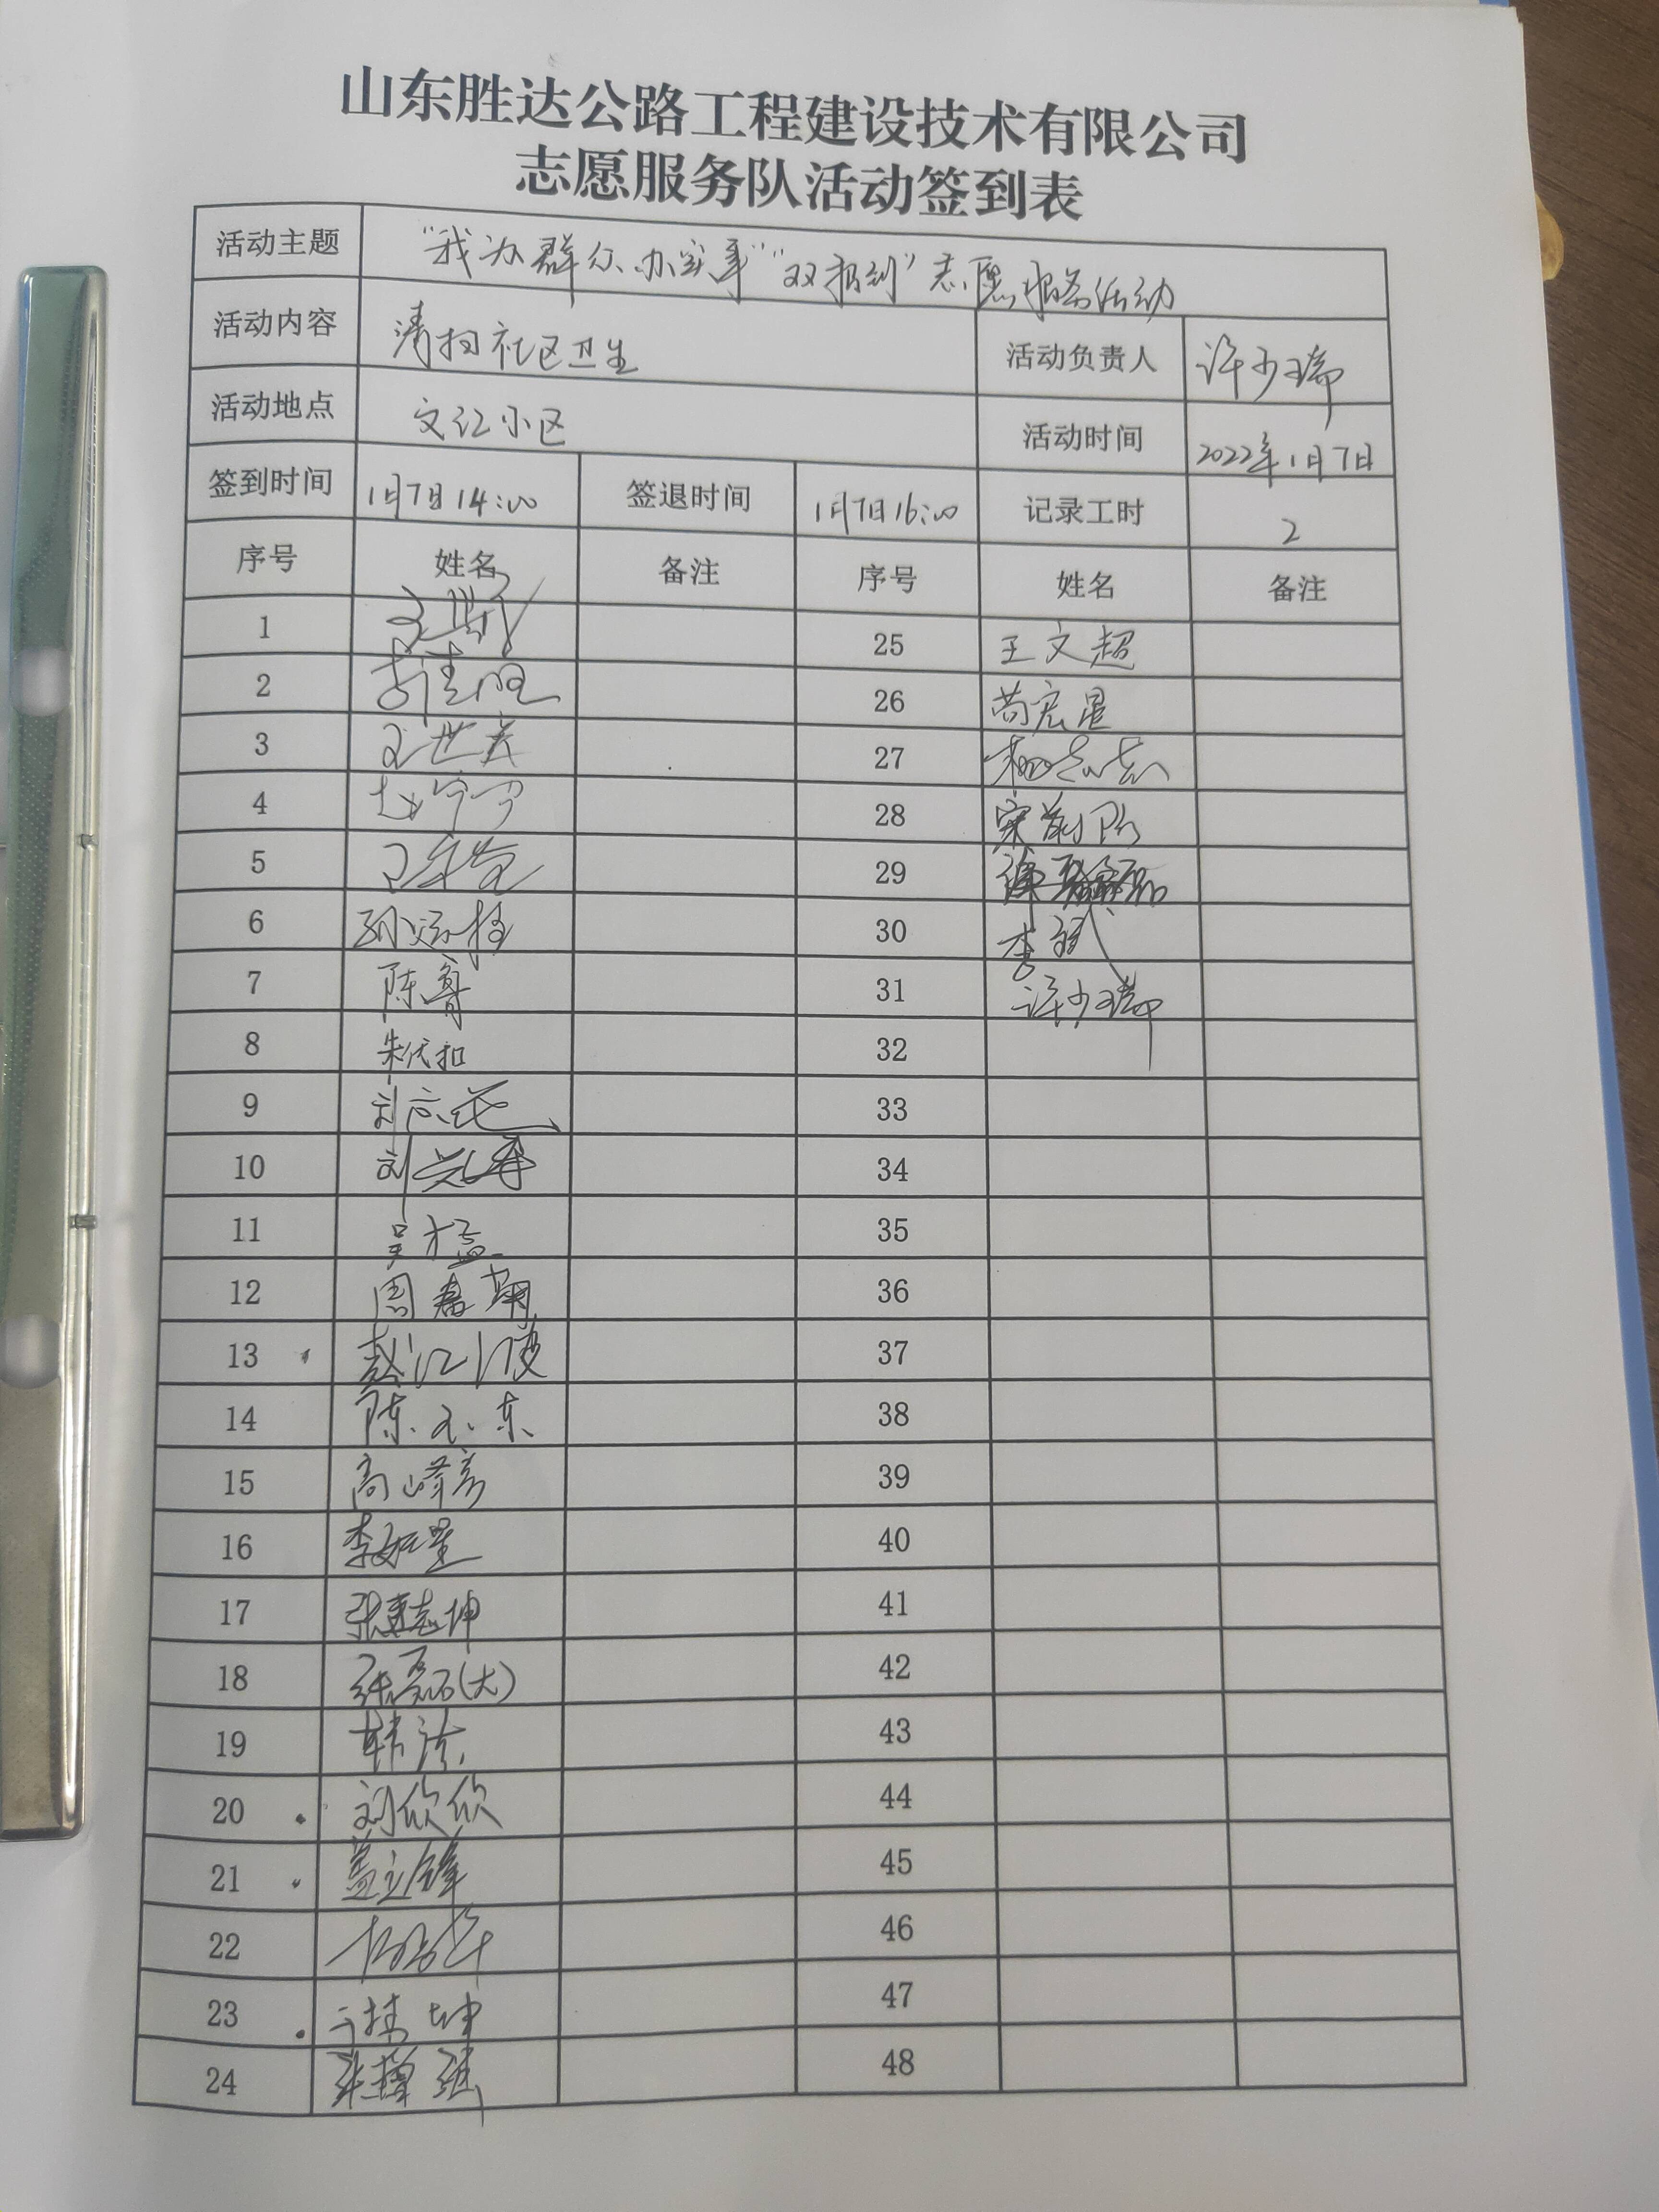 山东胜达公路工程建设技术有限公司
志愿服务队活动签到表
活动主题 "我为群众办实事""双报到"志愿服务活动
活动内容 清扫社区卫生 活动负责人 许少瑞
活动地点 文汇小区 活动时间 2022年1月7日
签到时间 1月7日14:00 签退时间 1月7日16:00 记录工时 2
序号 姓名 备注 序号 姓名 备注
1 25 王文超
2 26 苟宏星
3 王世 27 杨志
4 赵宁宁 28 宋
5 29
6 孙运 30 李斌
7 陈 31 许少瑞
8 朱 32
9 刘 33
10 刘兴军 34
11 吴猛 35
12 周嘉翔 36
13 赵江 37
14 陈 东 38
15 高峰彦 39
16 李 40
17 张 志坤 41
18 张磊(大) 42
19 韩 43
20 刘欣欣 44
21 盖立锋 45
22 46
23 坤 47
24 张 48